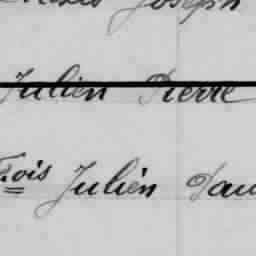 Joseph
Julien Pierre
F.ois Julien